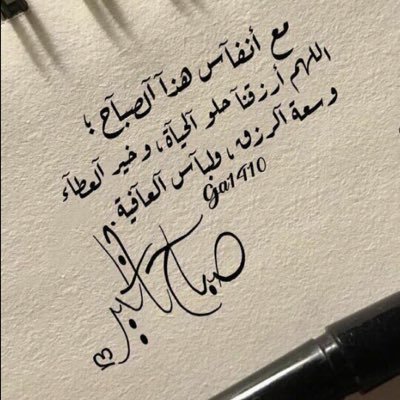 مع أنفآس هذآ آلصبآح ؛
اللهم أرزقنآ حلو آلحيآة ، وخير آلعطآء
وسعة آلرزق ، ولبآس آلعآفية .
Ga1410
صباح الخير